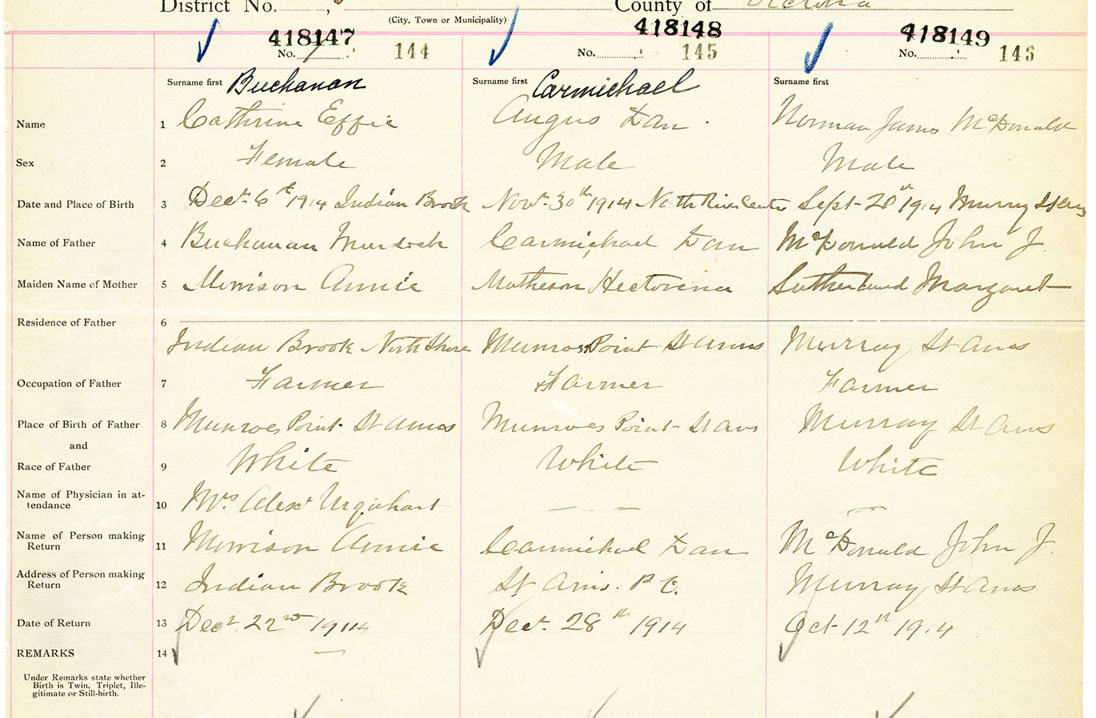 District No. County of Victoria
(City, Town or Municipality)
418147 418148 418149
No. 144 No. 145 No. 143
Surname first Buchanan Surname first Carmichael Surname first
Name 1 Cathrine Effie Angus Dan. Norman James McDonald
Sex 2 Female Male Male
Date and Place of Birth 3 Dec. 6th 1914 Indian Brook Nov. 30th 1914 North River Centre Sept. 28th 1914 Murray St Anns
Name of Father 4 Buchanan Murdock Carmichael Dan McDonald John J.
Maiden Name of Mother 5 Morrison Annie Matheson Hectorina Sutherland Margaret
Residence of Father 6
Indian Brook North Shore Munroes Point St Anns Murray St Anns
Occupation of Father 7 Farmer Farmer Farmer
Place of Birth of Father 8 Munroes Point St Anns Munroes Point St Anns Murray St Anns
and
Race of Father 9 White White White
Name of Physician in at-
tendance 10 Mrs Alex Urquhart — — —
Name of Person making
Return 11 Morrison Annie Carmichael Dan McDonald John J.
Address of Person making
Return 12 Indian Brook St Anns. P.O. Murray St Anns
Date of Return 13 Dec. 22nd 1914 Dec. 28th 1914 Oct. 12th 1914
REMARKS 14 —
Under Remarks state whether
Birth is Twin, Triplet, Ille-
gitimate or Still-birth.